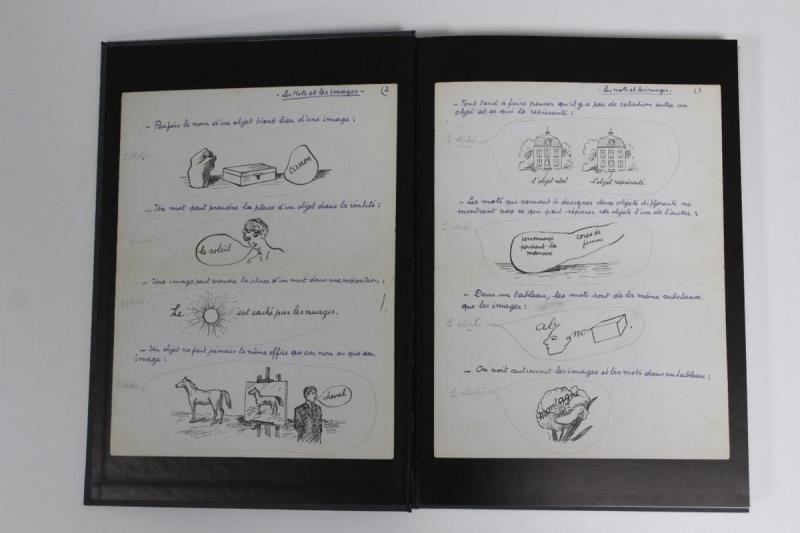 - Les Mots et les images - (2
- Parfois le nom d'un objet tient lieu d'une image :
1 cliché
canon
- Un mot peut prendre la place d'un objet dans la réalité :
1 cliché
le soleil
- Une image peut prendre la place d'un mot dans une proposition :
1 cliché
Le est caché par les nuages.
- Un objet ne fait jamais le même office que son nom ou que son
image :
1 cliché
cheval
- Les mots et les images - (3
- Tout tend à faire penser qu'il y a peu de relation entre un
objet et ce qui le représente :
1 cliché
l'objet réel l'objet représenté
- Les mots qui servent à désigner deux objets différents ne
montrent pas ce qui peut séparer ces objets l'un de l'autre :
1 cliché
personnage
perdant la
mémoire
corps de
femme
- Dans un tableau, les mots sont de la même substance
que les images :
1 cliché
no
- On voit autrement les images et les mots dans un tableau :
1 cliché
montagne